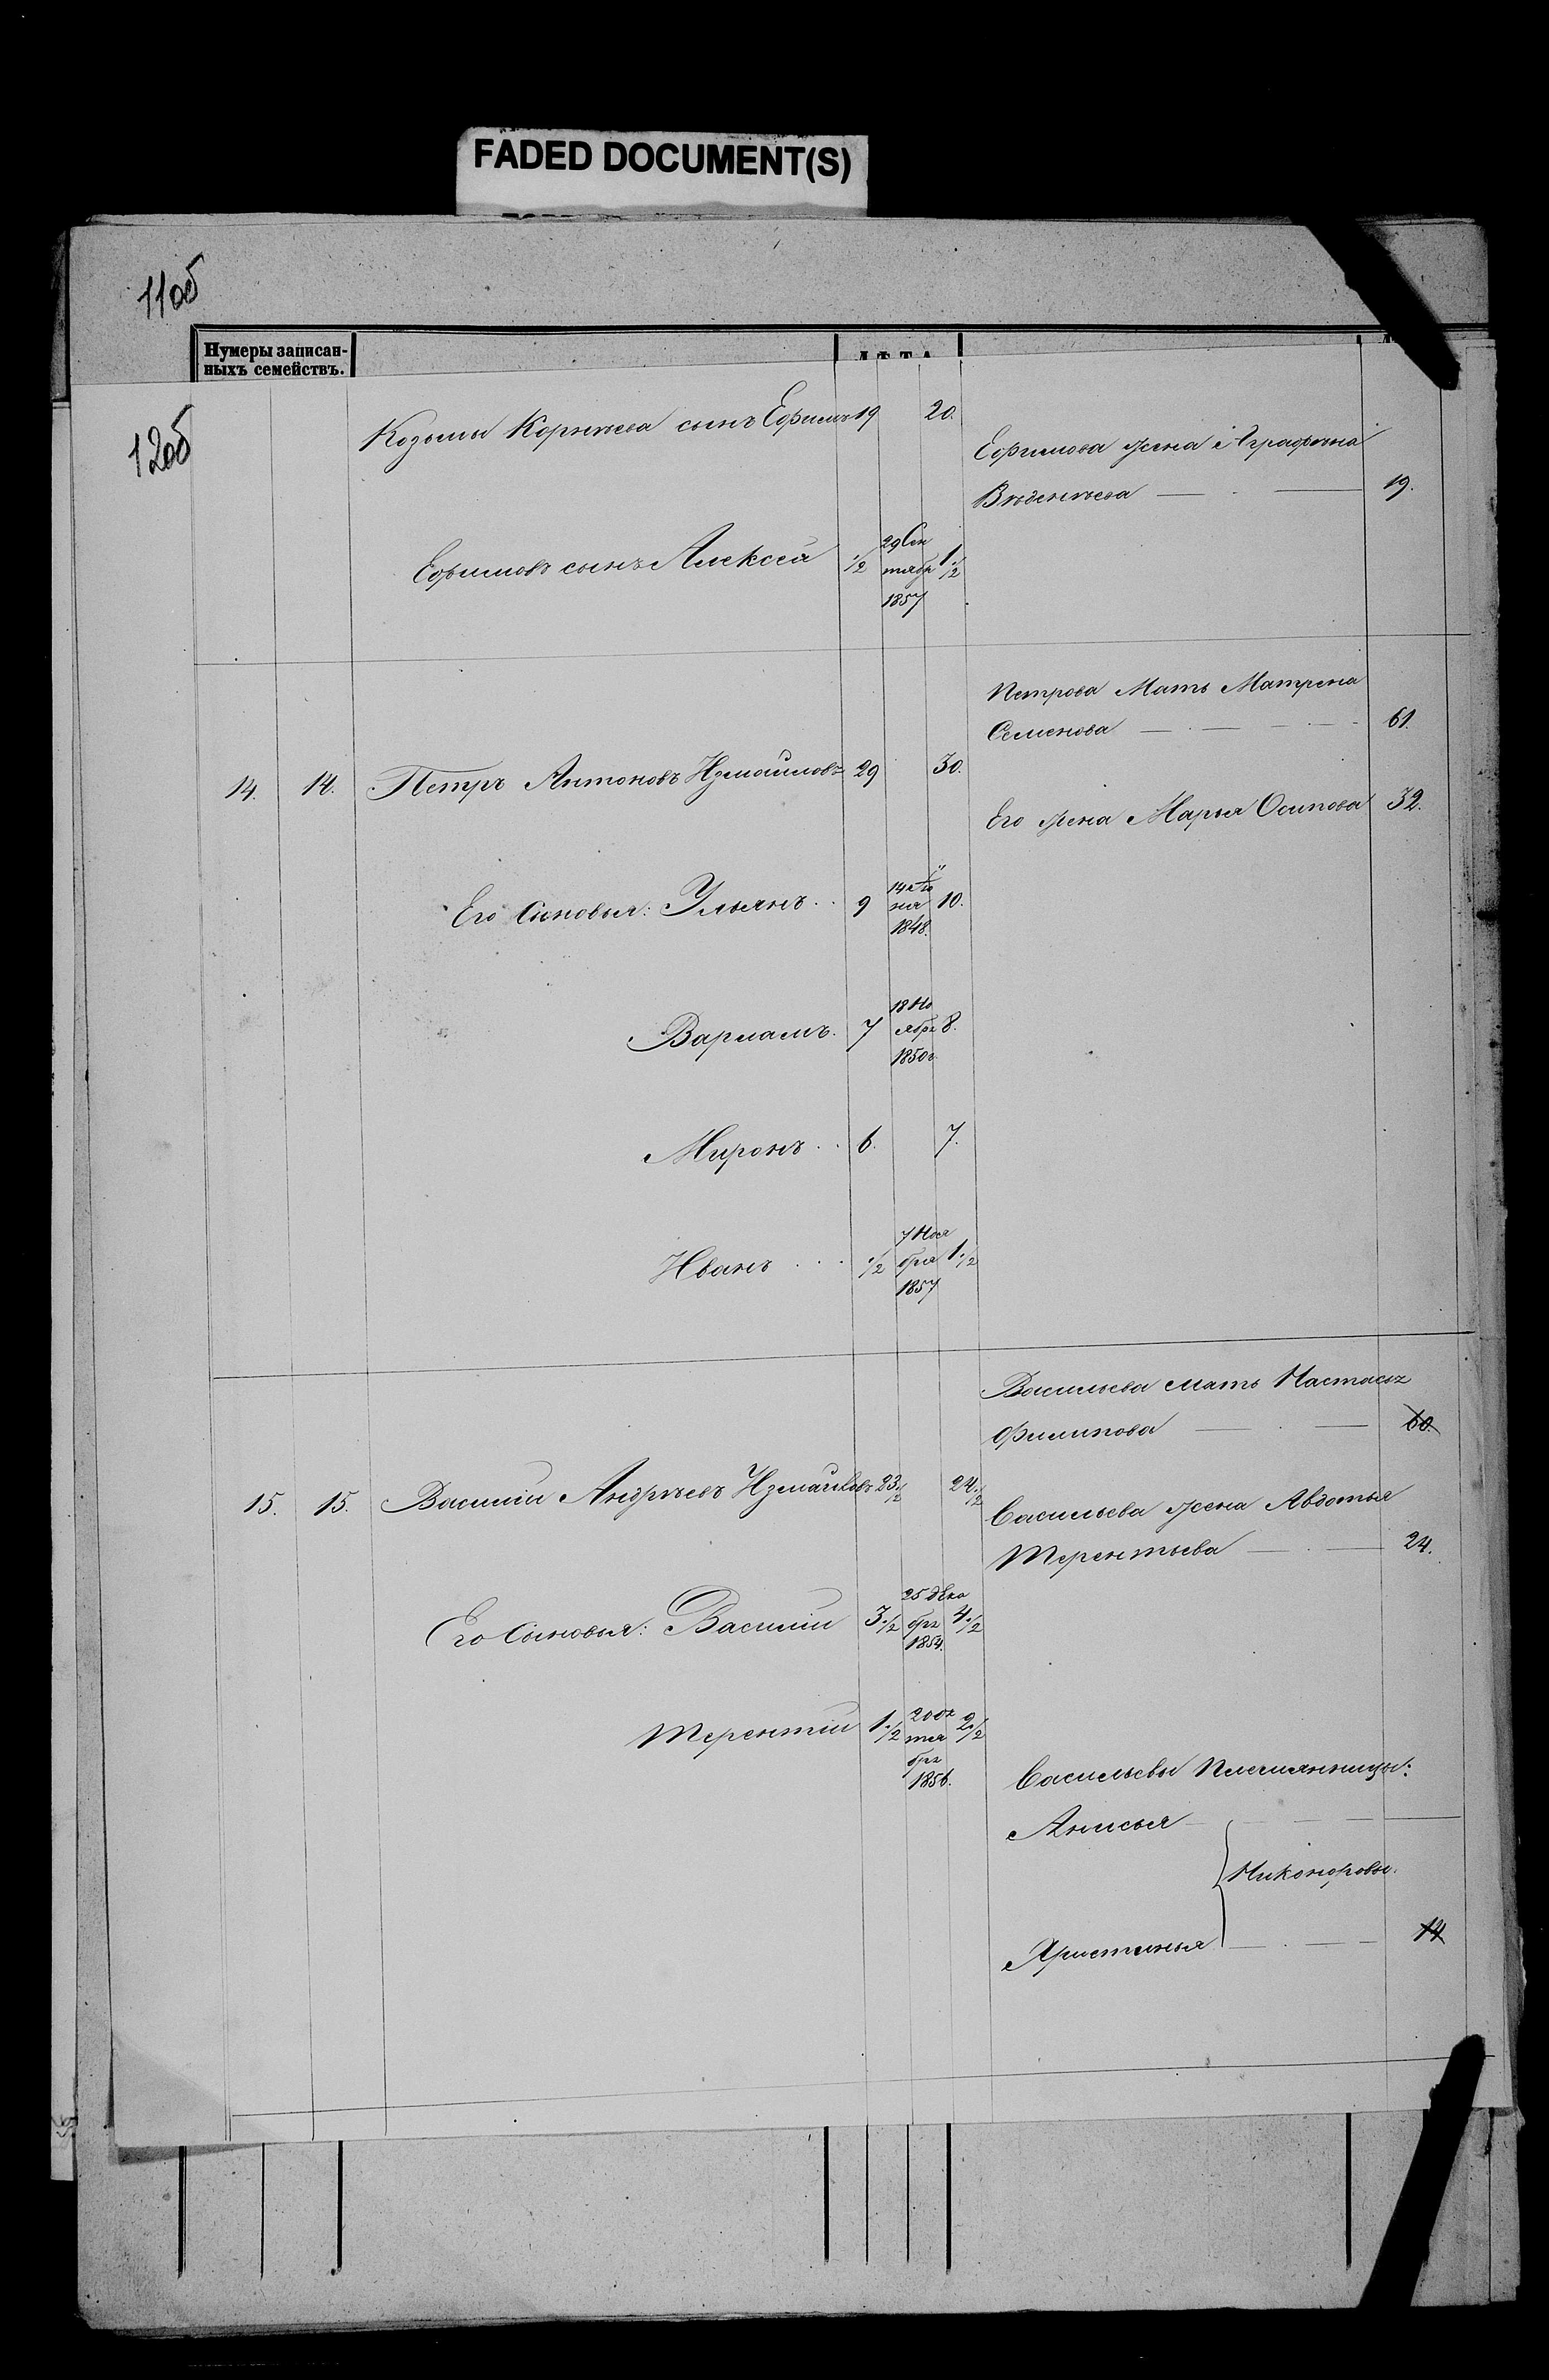 FADED DOCUMENT(S)
11об
Нумеры записан-
ныхъ семействъ.
ЛѢТА
12об
Козьмы Корнѣева сынъ Ефимъ 19 20.
Ефимова жена Аграфена
Веденѣева 19.
Ефимовъ сынъ Алексѣй 1/2 29 Сен
тябр 1 1/2
1857
Петрова Мать Матрена
Семенова 61.
14. 14. Петръ Антоновъ Измайловъ 29 30.
Его жена Марья Осипова 32.
Его Сыновья: Ульянъ 9 10.
1848.
Варламъ. 7 18 Но
ября 8.
1850г.
Миронъ 6. 7.
Иванъ 1/2 7 Ноя
бря 1 1/2
1857
Васильева мать Настасья
Филипова 60.
15. 15. Василий Андрѣевъ Измайловъ 23 1/2 24 1/2
Васильева жена Авдотья
Терентьева 24.
Его Сыновья: Василий 3 1/2 25 Дека
бря 4 1/2
1854.
Терентий 1 1/2 20 Ок
тя 2 1/2
бря
1856.
Васильевы Племянницы:
Анисья
Никоноровы.
Христинья 14